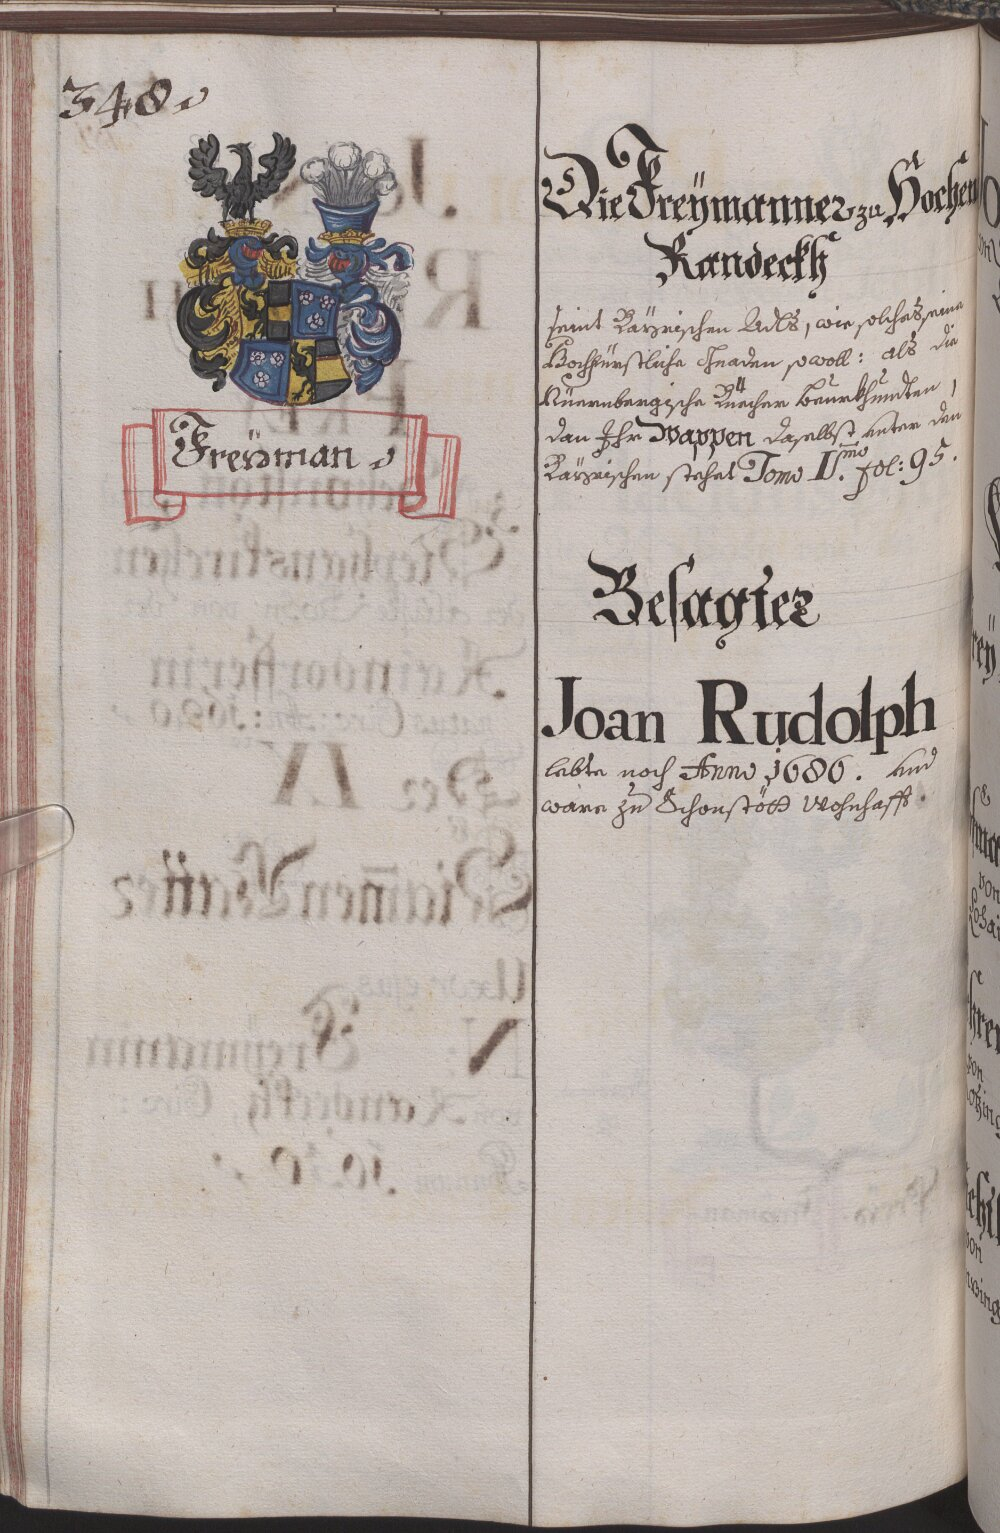 348.
Freÿman.
Die Freÿmanner zu Hochen
Randeckh
seint Baÿrischen Adls, wie solches seine
Hochfürstliche Gnaden sowoll: als die
Nüernbergische Büecher beurkhundten,
dan Ihr Wappen daselbst unter den
Baÿrischen stehet Tomo II.do fol: 95.
Besagter
Joan Rudolph
lebte noch Anno 1686. und
ware zu Schonstött Wohnhafft.